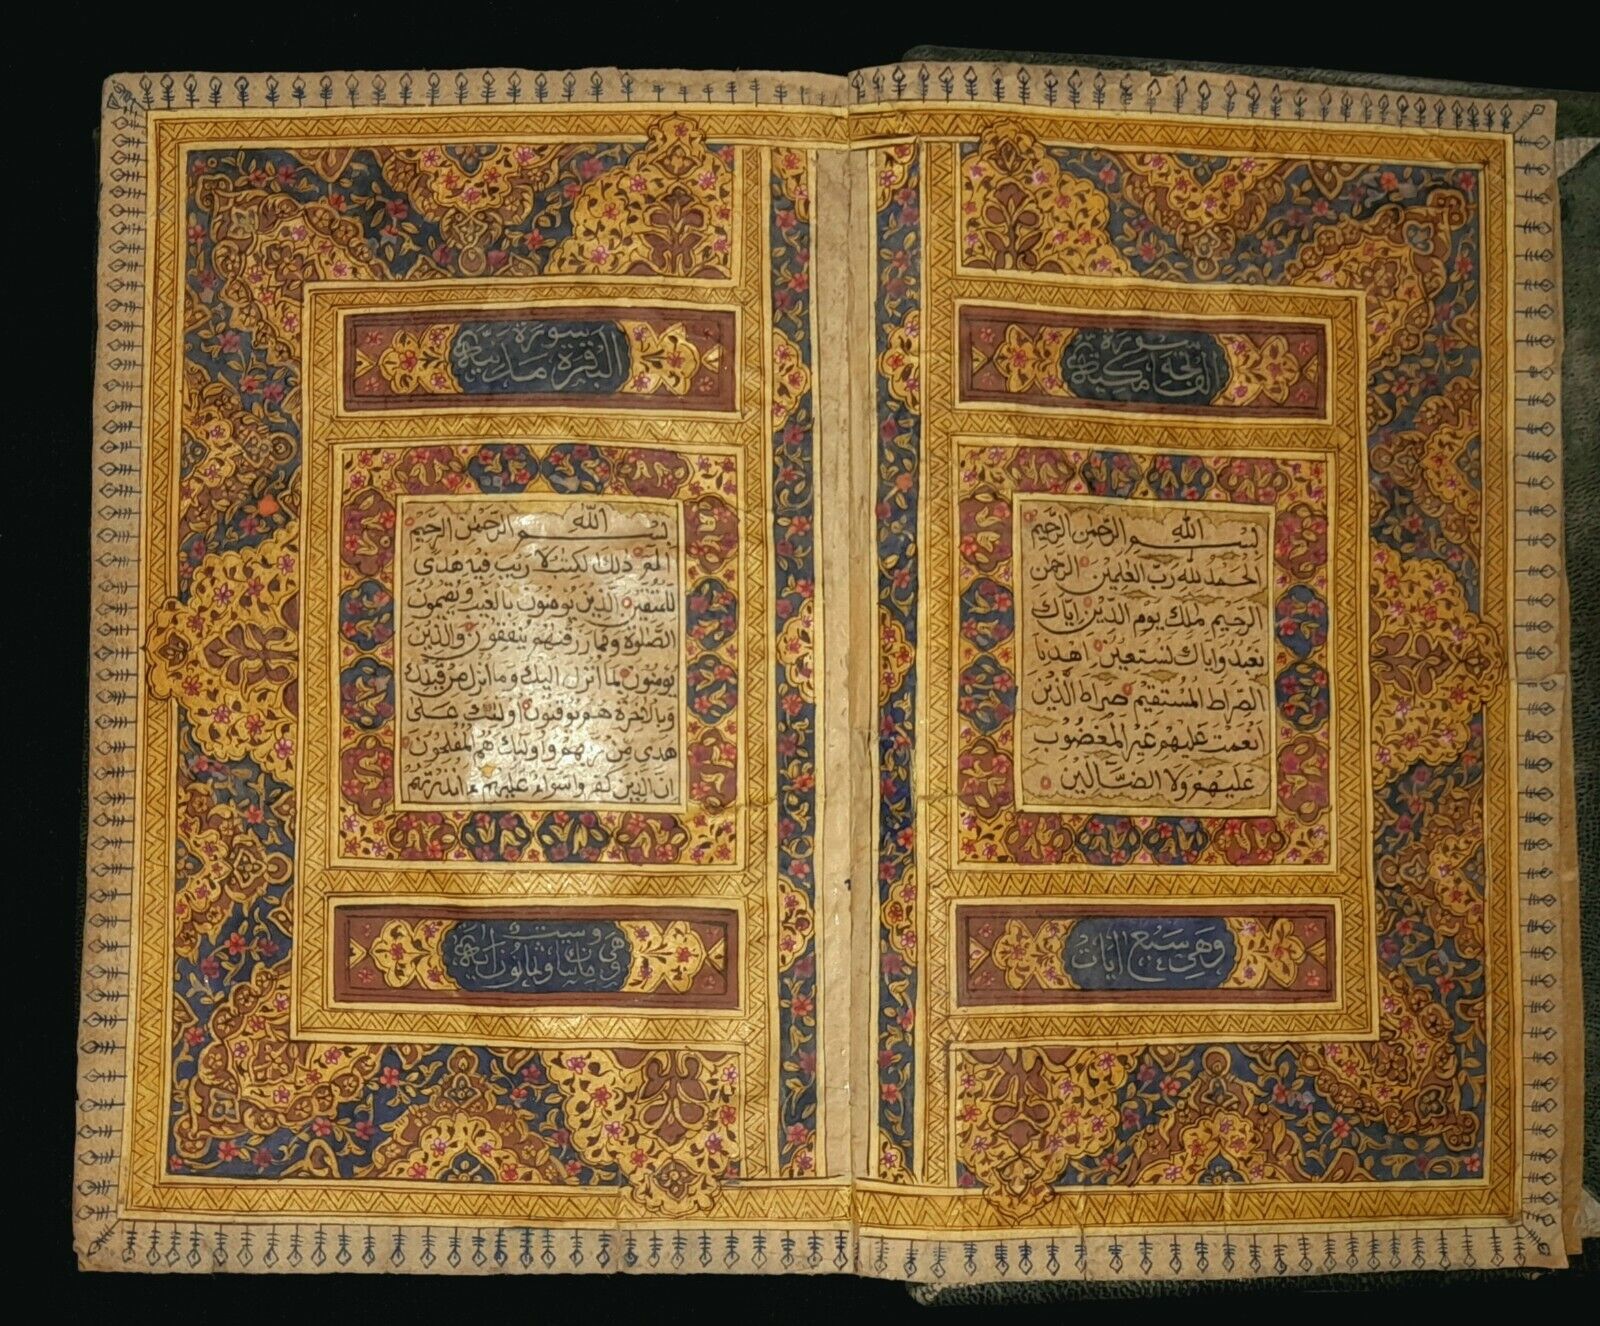 سورة
الفاتحة مكية
بسم الله الرحمن الرحيم
الحمد لله رب العلمين الرحمن
الرحيم ملك يوم الدين اياك
نعبد واياك نستعين اهدنا
الصراط المستقيم صراط الذين
انعمت عليهم غير المغضوب
عليهم ولا الضالين
وهي سبع ايات
سورة
البقرة مدنية
بسم الله الرحمن الرحيم
الم ذلك لكتب لا ريب فيه هدى
للمتقين الذين يومنون بالغيب ويقيمون
الصلوة ومما رزقنهم ينفقون والذين
يومنون بما انزل اليك وما انزل من قبلك
وبالاخرة هم يوقنون اولئك على
هدى من ربهم واولئك هم المفلحون
ان الذين كفروا سواء عليهم ءانذرتهم
وهي
مائتا وثمانون وست اية